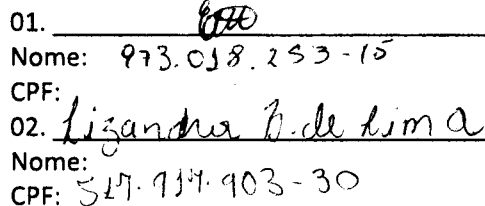 01.
Nome: 973.018.253-15
CPF:
02. Lizandra B. de Lima
Nome:
CPF: 517.717.903-30